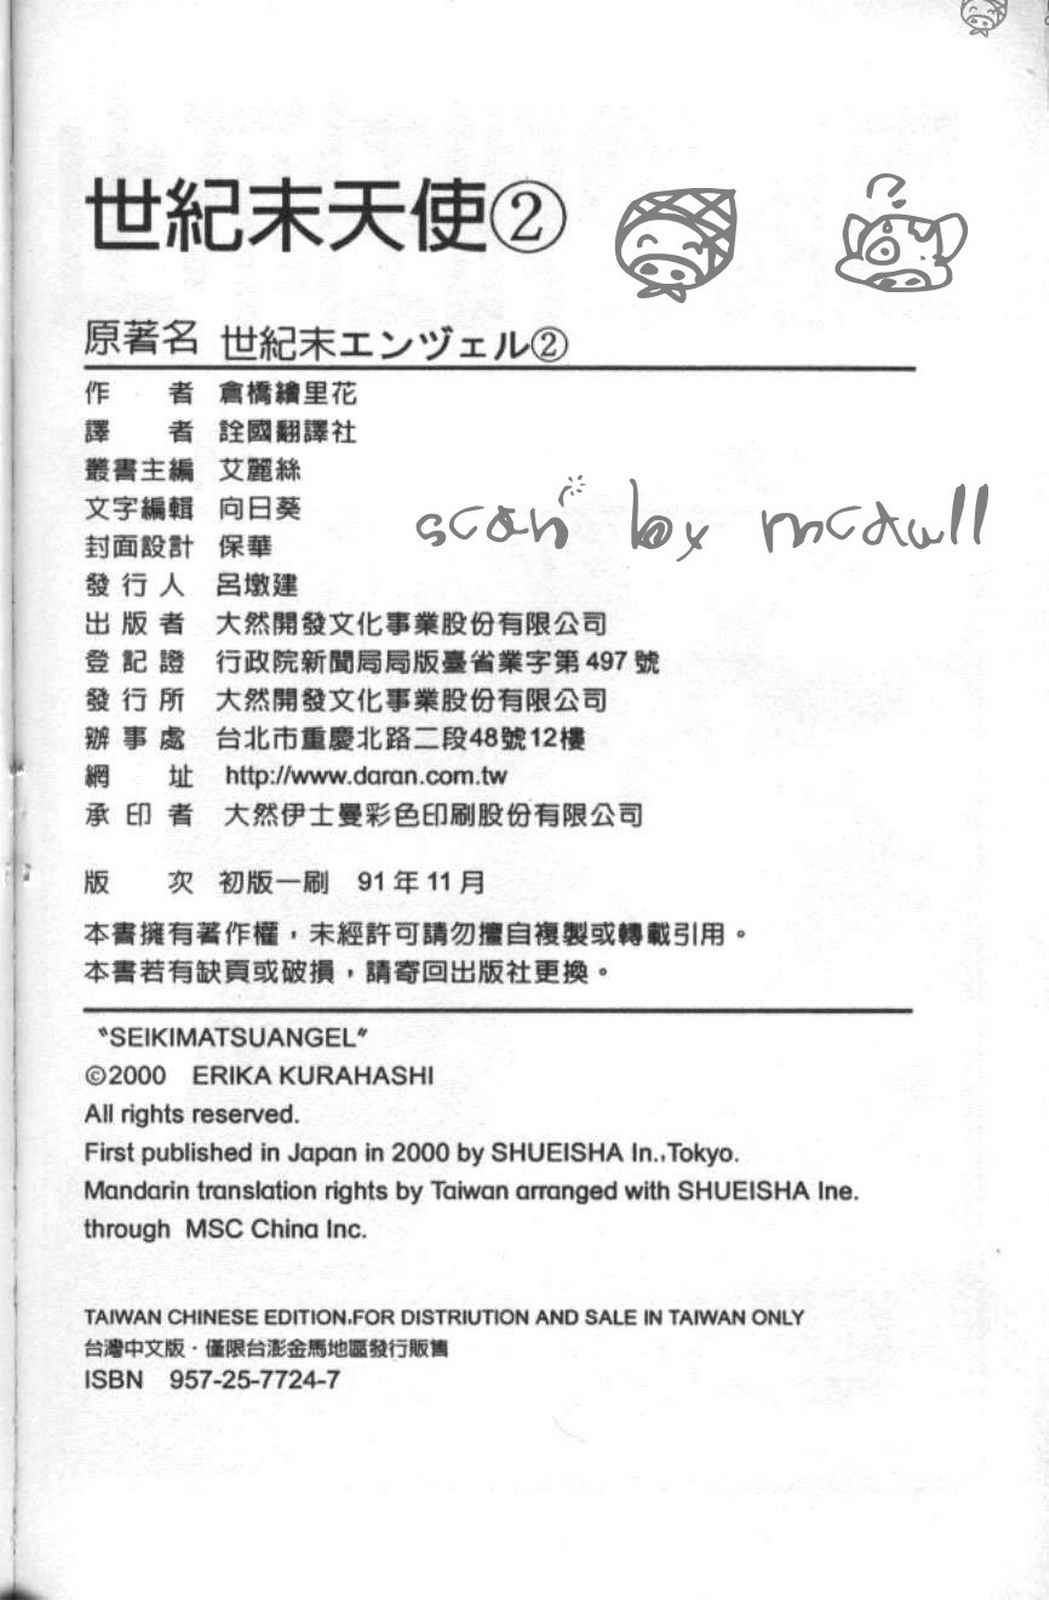 世紀末天使②
原著名 世紀末エンヅェル②
作者 倉橋繪里花
譯者 詮國翻譯社
叢書主編 艾麗絲
文字編輯 向日葵
scan by mcdull
封面設計 保華
發行人 呂墩建
出版者 大然開發文化事業股份有限公司
登記證 行政院新聞局局版臺省業字第497號
發行所 大然開發文化事業股份有限公司
辦事處 台北市重慶北路二段48號12樓
網址 http://www.daran.com.tw
承印者 大然伊士曼彩色印刷股份有限公司
版次 初版一刷 91年11月
本書擁有著作權，未經許可請勿擅自複製或轉載引用。
本書若有缺頁或破損，請寄回出版社更換。
〝SEIKIMATSUANGEL〞
©2000 ERIKA KURAHASHI
All rights reserved.
First published in Japan in 2000 by SHUEISHA In.,Tokyo.
Mandarin translation rights by Taiwan arranged with SHUEISHA Ine.
through MSC China Inc.
TAIWAN CHINESE EDITION,FOR DISTRIUTION AND SALE IN TAIWAN ONLY
台灣中文版·僅限台澎金馬地區發行販售
ISBN 957-25-7724-7